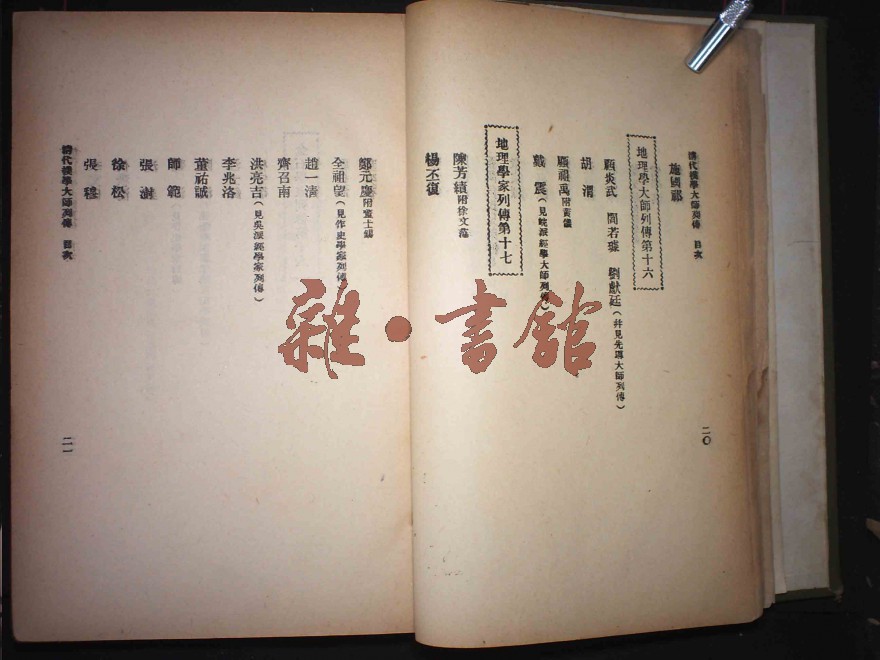 清代樸學大師列傳 目次
施國祁
地理學大師列傳第十六
顧炎武 閻若璩 劉獻廷(幷見先導大師列傳)
胡渭
顧祖禹附黃儀
戴震(見皖派經學大師列傳)
地理學家列傳第十七
陳芳績附徐文范
楊丕復
二〇
鄭元慶附
全祖望(見作史學家列傳)
趙一清
齊召南
洪亮吉(見吳派經學家列傳)
李兆洛
董祐誠
師範
張澍
徐松
張穆
清代樸學大師列傳 目次
二一
雜·書館